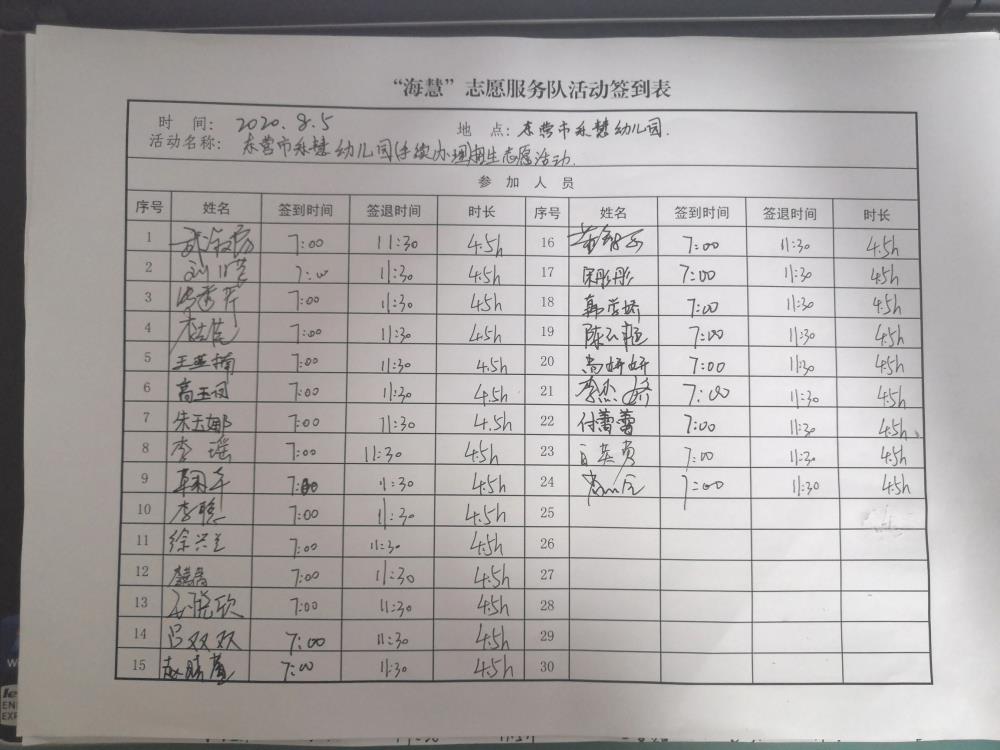 “海慧”志愿服务队活动签到表
时 间： 2020.8.5 地 点：东营市永慧幼儿园.
活动名称： 东营市永慧幼儿园(手续办理)招生志愿活动.
参 加 人 员
序号 姓名 签到时间 签退时间 时长 序号 姓名 签到时间 签退时间 时长
1 7:00 11:30 4.5h 16 7:00 11:30 4.5h
2 7:00 11:30 4.5h 17 宋彤彤 7:00 11:30 4.5h
3 7:00 11:30 4.5h 18 7:00 11:30 4.5h
4 7:00 11:30 4.5h 19 7:00 11:30 4.5h
5 王亚楠 7:00 11:30 4.5h 20 尚妍妍 7:00 11:30 4.5h
6 7:00 11:30 4.5h 21 李杰娇 7:00 11:30 4.5h
7 朱玉娜 7:00 11:30 4.5h 22 付蕾蕾 7:00 11:30 4.5h
8 李瑶 7:00 11:30 4.5h 23 7:00 11:30 4.5h
9 7:00 11:30 4.5h 24 7:00 11:30 4.5h
10 李聪 7:00 11:30 4.5h 25
11 徐兴兰 7:00 11:30 4.5h 26
12 7:00 11:30 4.5h 27
13 7:00 11:30 4.5h 28
14 吕双双 7:00 11:30 4.5h 29
15 7:00 11:30 4.5h 30